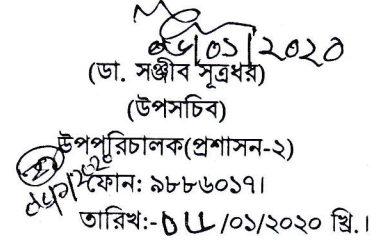 ০৮/০১/২০২০
(ডা. সঞ্জীব সূত্রধর)
(উপসচিব)
উপপরিচালক(প্রশাসন-২)
ফোন: ৯৮৮৬০১৭।
তারিখ:- /০১/২০২০ খ্রি.।